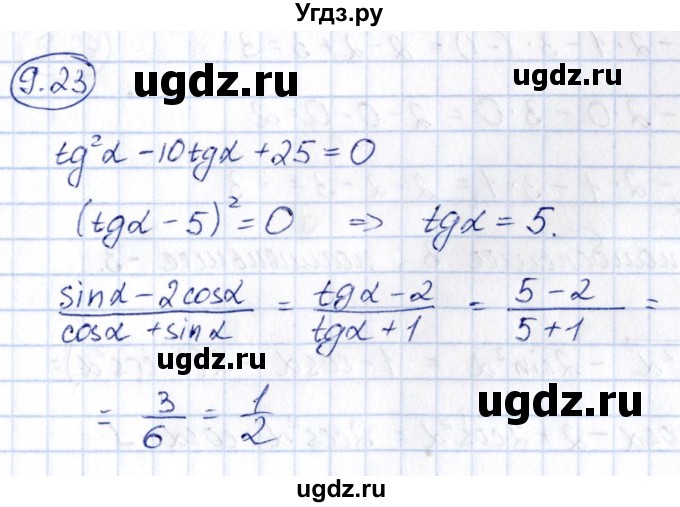 Угдз.ру
9.23
ugdz.ru ugdz.ru
tg²α − 10tgα + 25 = 0
(tgα − 5)² = 0 ⇒ tgα = 5.
sinα − 2cosα / cosα + sinα = tgα − 2 / tgα + 1 = 5 − 2 / 5 + 1 =
ugdz.ru ugdz.ru
= 3/6 = 1/2
ugdz.ru
ugdz.ru